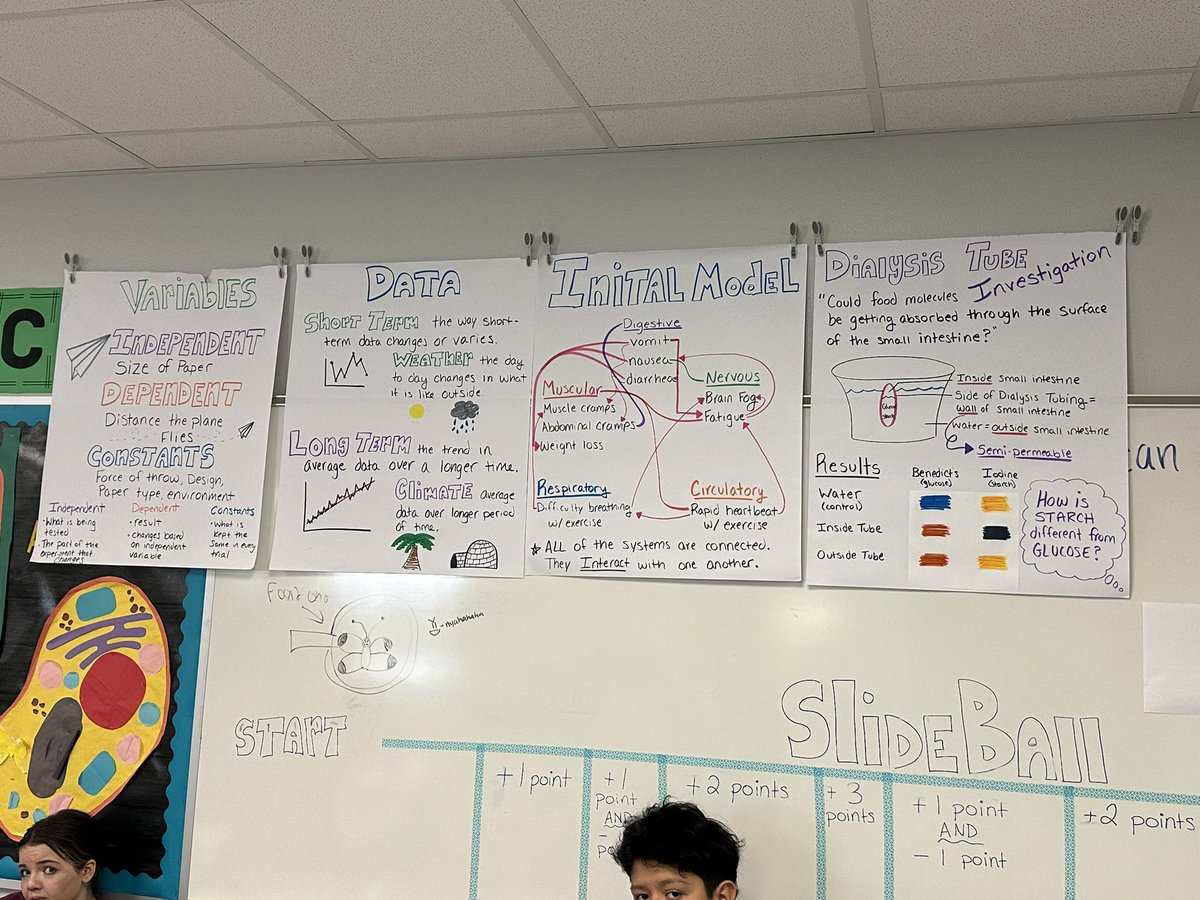 C
VARIABLES
INDEPENDENT
Size of Paper
DEPENDENT
Distance the plane
Flies
CONSTANTS
Force of throw, Design,
Paper type, environment
Independent
• What is being
tested
• The part of the
experiment that
changes
Dependent
• result
• changes based
on independent
variable
Constants
• what is
kept the
same in every
trial
DATA
SHORT TERM the way short-
term data changes or varies.
WEATHER the day
to day changes in what
it is like outside.
LONG TERM the trend in
average data over a longer time.
CLIMATE average
data over longer period
of time.
INITAL MODEL
Digestive
vomit
nausea
diarrhea
Muscular
Muscle cramps
Abdominal cramps
Weight loss
Nervous
Brain Fog
Fatigue
Respiratory
Difficulty breathing
w/ exercise
Circulatory
Rapid heartbeat
w/ exercise
★ ALL of the systems are connected.
They Interact with one another.
DIALYSIS TUBE
Investigation
"Could food molecules
be getting absorbed through the surface
of the small intestine?"
Inside small intestine
Side of Dialysis Tubing =
wall of small intestine
Water = outside small intestine
Semi-permeable
Results
Benedict's
(glucose)
Iodine
(starch)
Water
(control)
Inside Tube
Outside Tube
How is
STARCH
different from
GLUCOSE?
an
START
SlideBall
+1 point
+1
point
AND
-
+2 points
+3
points
+1 point
AND
-1 point
+2 points